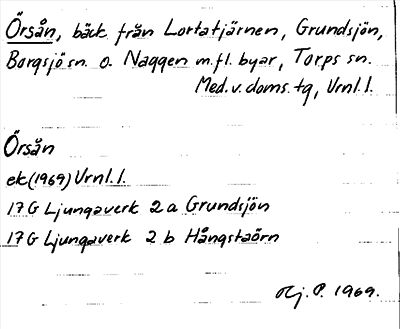 Örsån, bäck från Lortatjärnen, Grundsjön,
Borgsjö sn. o. Naggen m.fl. byar, Torps sn.
Med. v. doms. tg, Vrnl. l.
Örsån
ek (1969) Vrnl. l.
17 G Ljungaverk 2 a Grundsjön
17 G Ljungaverk 2 b Hångstaörn
P. 1969.